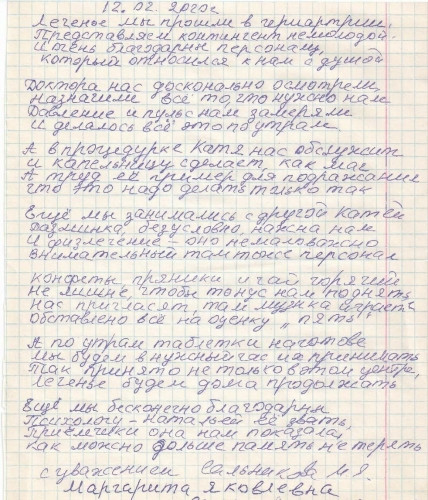 12.02.2020г
Леченье мы прошли в гериартрии.
Представляем контингент немолодой.
И очень благодарны персоналу,
который относился к нам с душой
Доктора нас досконально осмотрели,
назначили всё то, что нужно нам
Давление и пульс нам замеряли
и делалось всё это по утрам
А в процедурке Катя нас обслужит
и капельницу сделает, как маг
А труд её пример для подражания
что это надо делать только так
Ещё мы занимались с другой Катей
Разминка, безусловно, важна нам
И физлечение - оно немаловажно
внимательный там тоже персонал
Конфеты, пряники и чай горячий
не лишне, чтобы тонус нам поднять
нас пригласят, там музыка играет
обставлено всё на оценку "пять"
А по утрам таблетки наготове
мы будем в нужный час их принимать
Так принято не только в этом центре,
леченье будем дома продолжать
Ещё мы бесконечно благодарны
Психологу - Натальей её звать,
Приёмчики она нам показала,
как можно дольше память не терять
с уважением Сальникова М.Я.
Маргарита Яковлевна